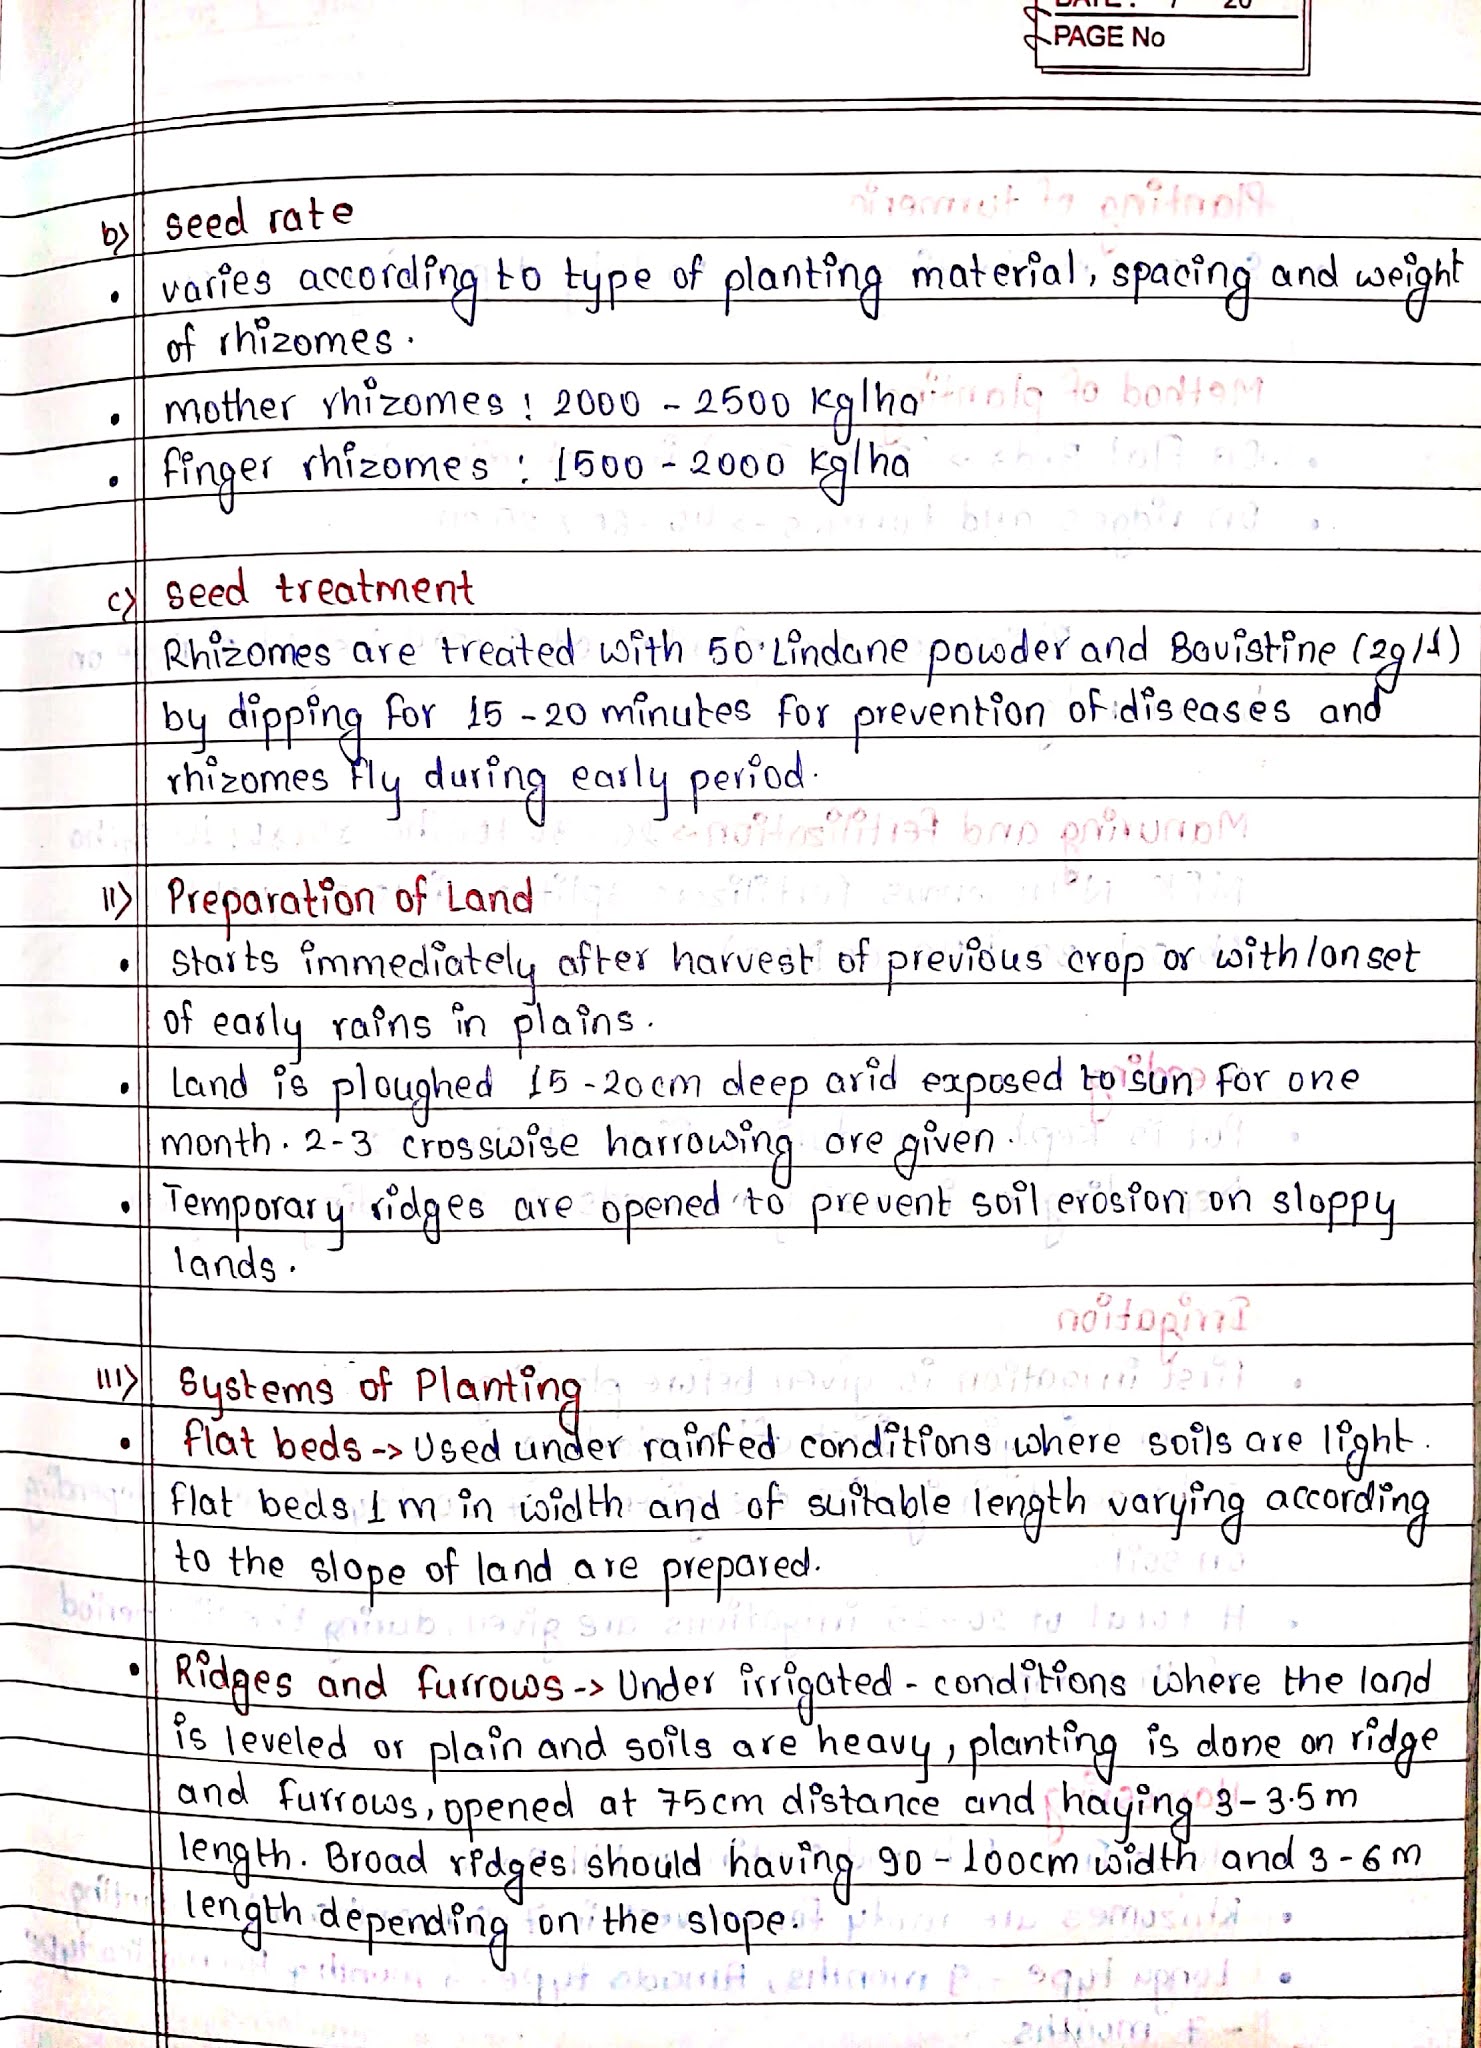 PAGE No
b) seed rate
• varies according to type of planting material, spacing and weight
of rhizomes.
• mother rhizomes : 2000 - 2500 kg/ha
• finger rhizomes : 1500 - 2000 kg/ha
c) seed treatment
Rhizomes are treated with 50. Lindane powder and Bavistine (2g/l)
by dipping for 15-20 minutes for prevention of diseases and
rhizomes fly during early period.
II) Preparation of Land
• starts immediately after harvest of previous crop or with/onset
of early rains in plains.
• Land is ploughed 15-20cm deep and exposed to sun for one
month. 2-3 crosswise harrowing are given.
• Temporary ridges are opened to prevent soil erosion on sloppy
lands.
III) Systems of Planting
• flat beds -> Used under rainfed conditions where soils are light.
flat beds 1 m in width and of suitable length varying according
to the slope of land are prepared.
• Ridges and furrows -> Under irrigated - conditions where the land
is leveled or plain and soils are heavy, planting is done on ridge
and furrows, opened at 75cm distance and haying 3-3.5 m
length. Broad ridges should having 90-100cm width and 3-6m
length depending on the slope.